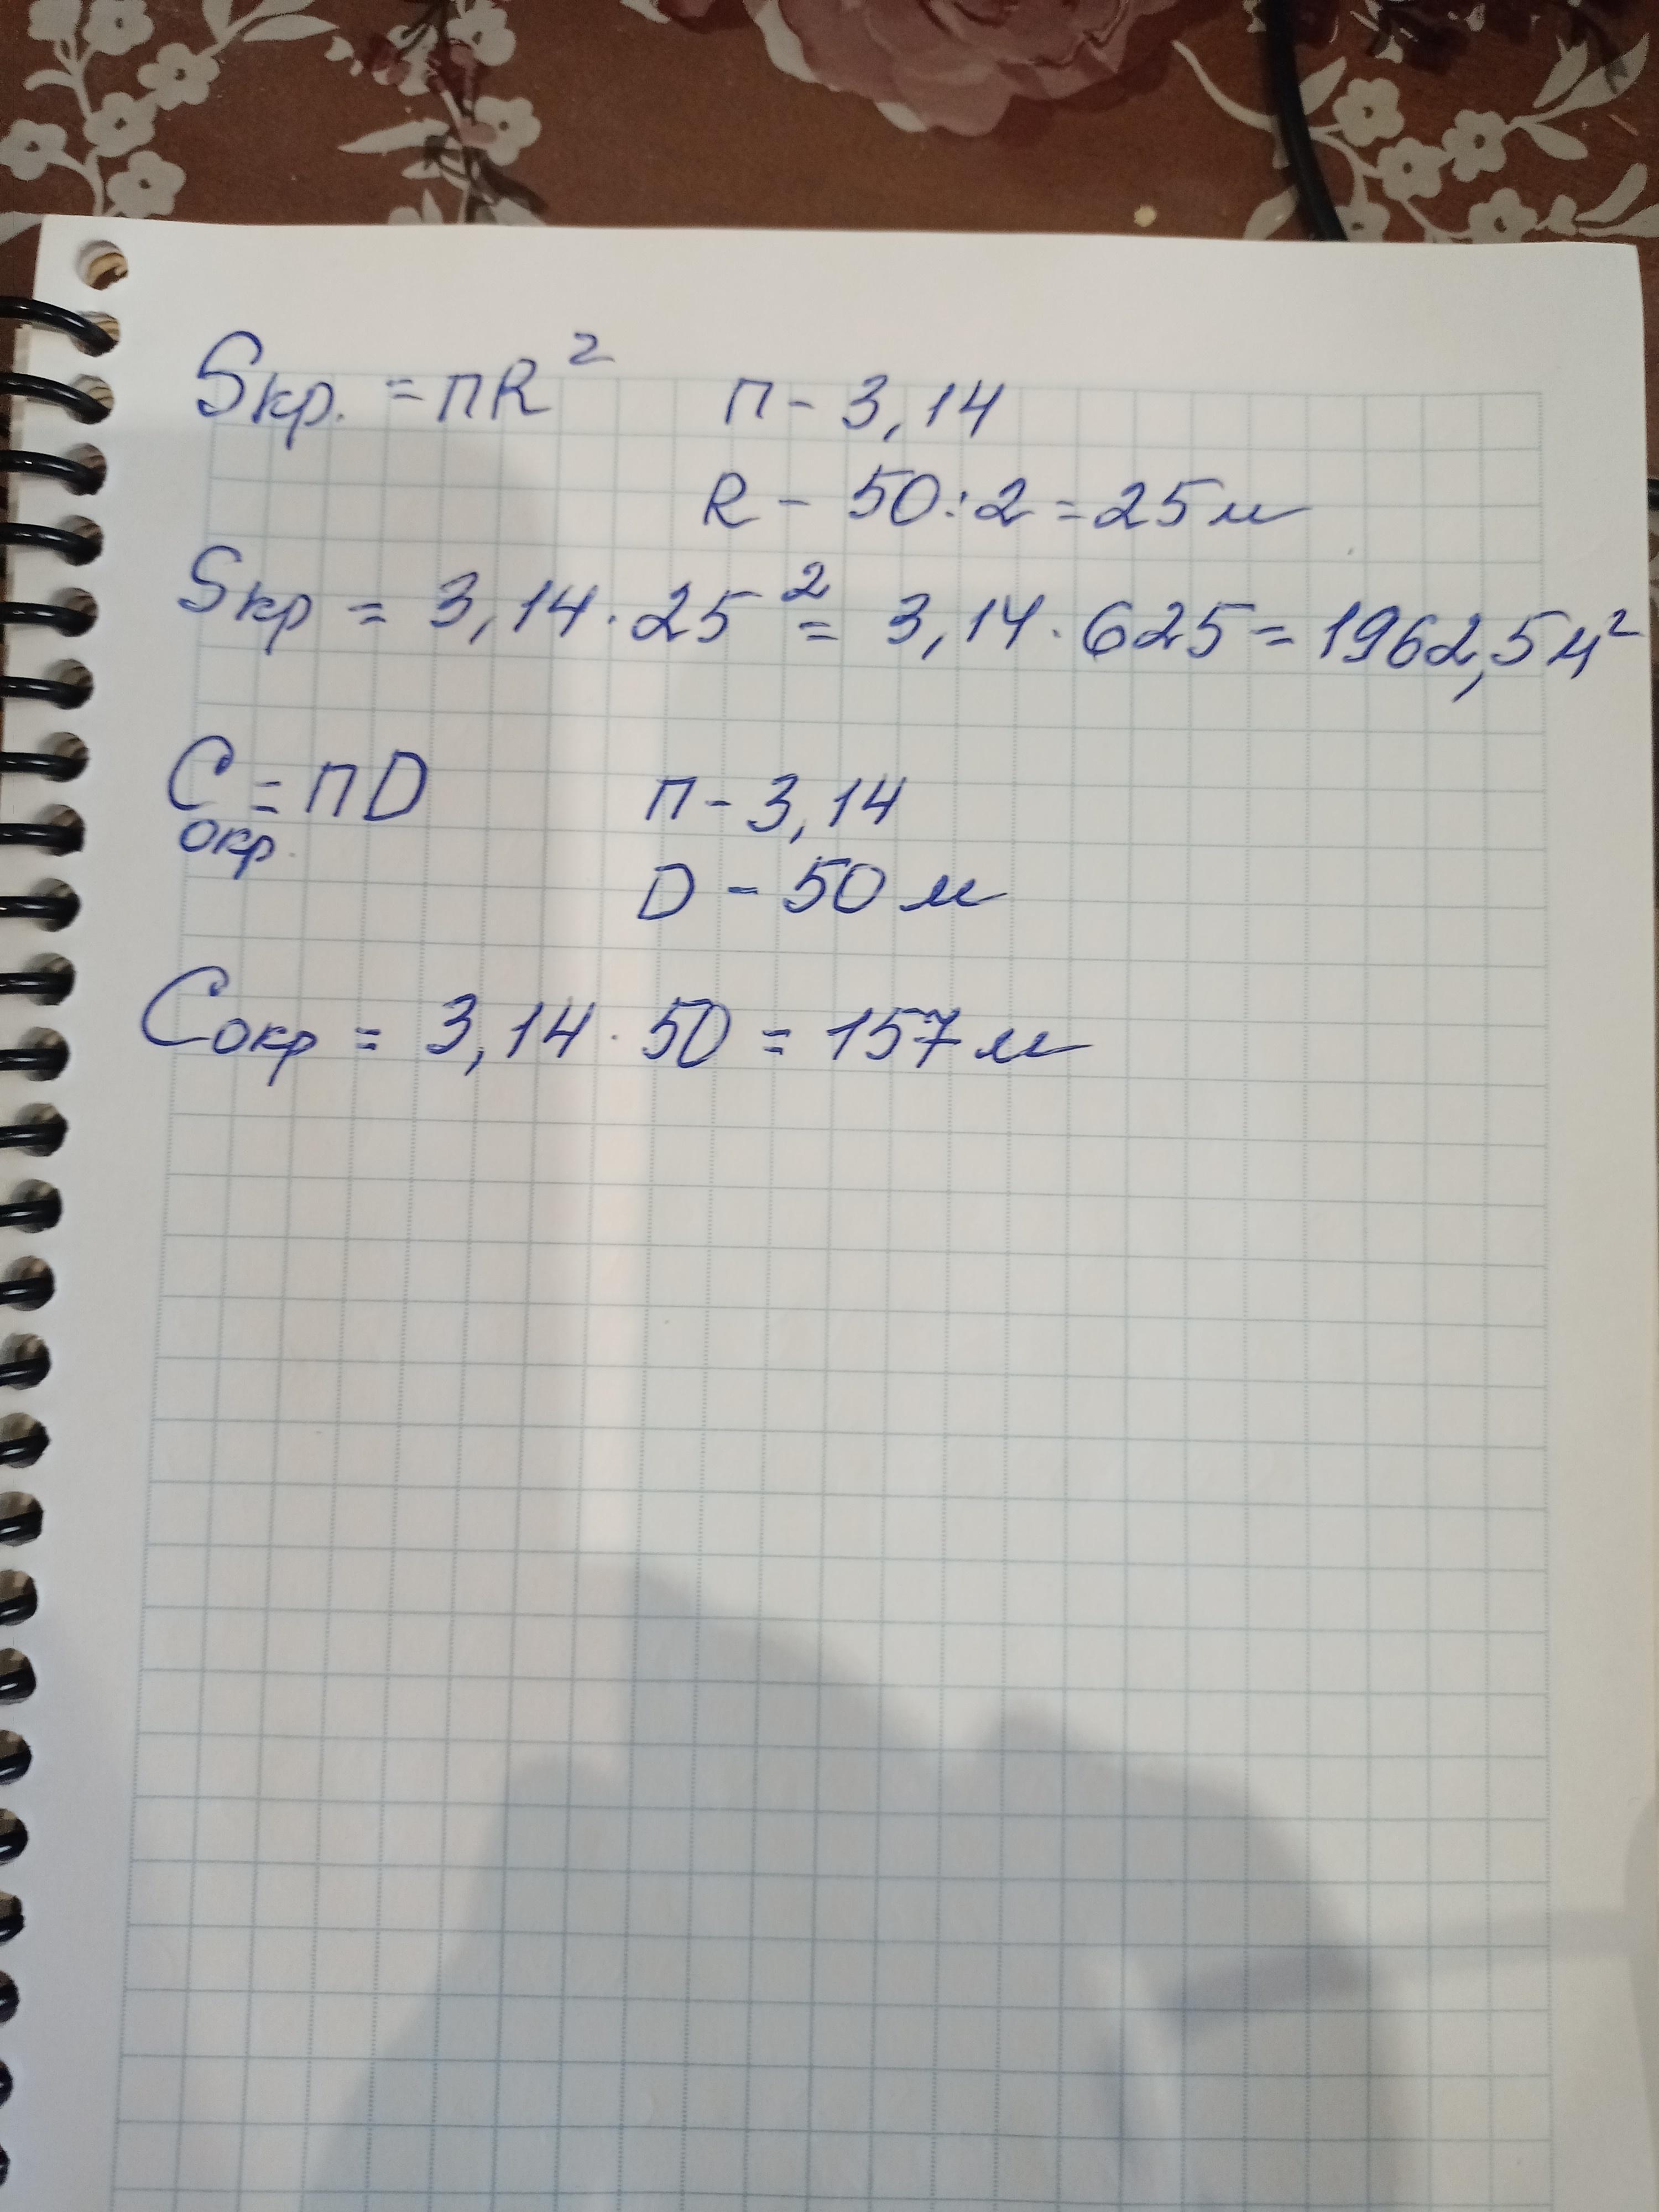 Sкр. = пR²
п - 3,14
R - 50:2 = 25 м
Sкр = 3,14 · 25² = 3,14 · 625 = 1962,5 м²
Cокр. = пD
п - 3,14
D - 50 м
Cокр = 3,14 · 50 = 157 м